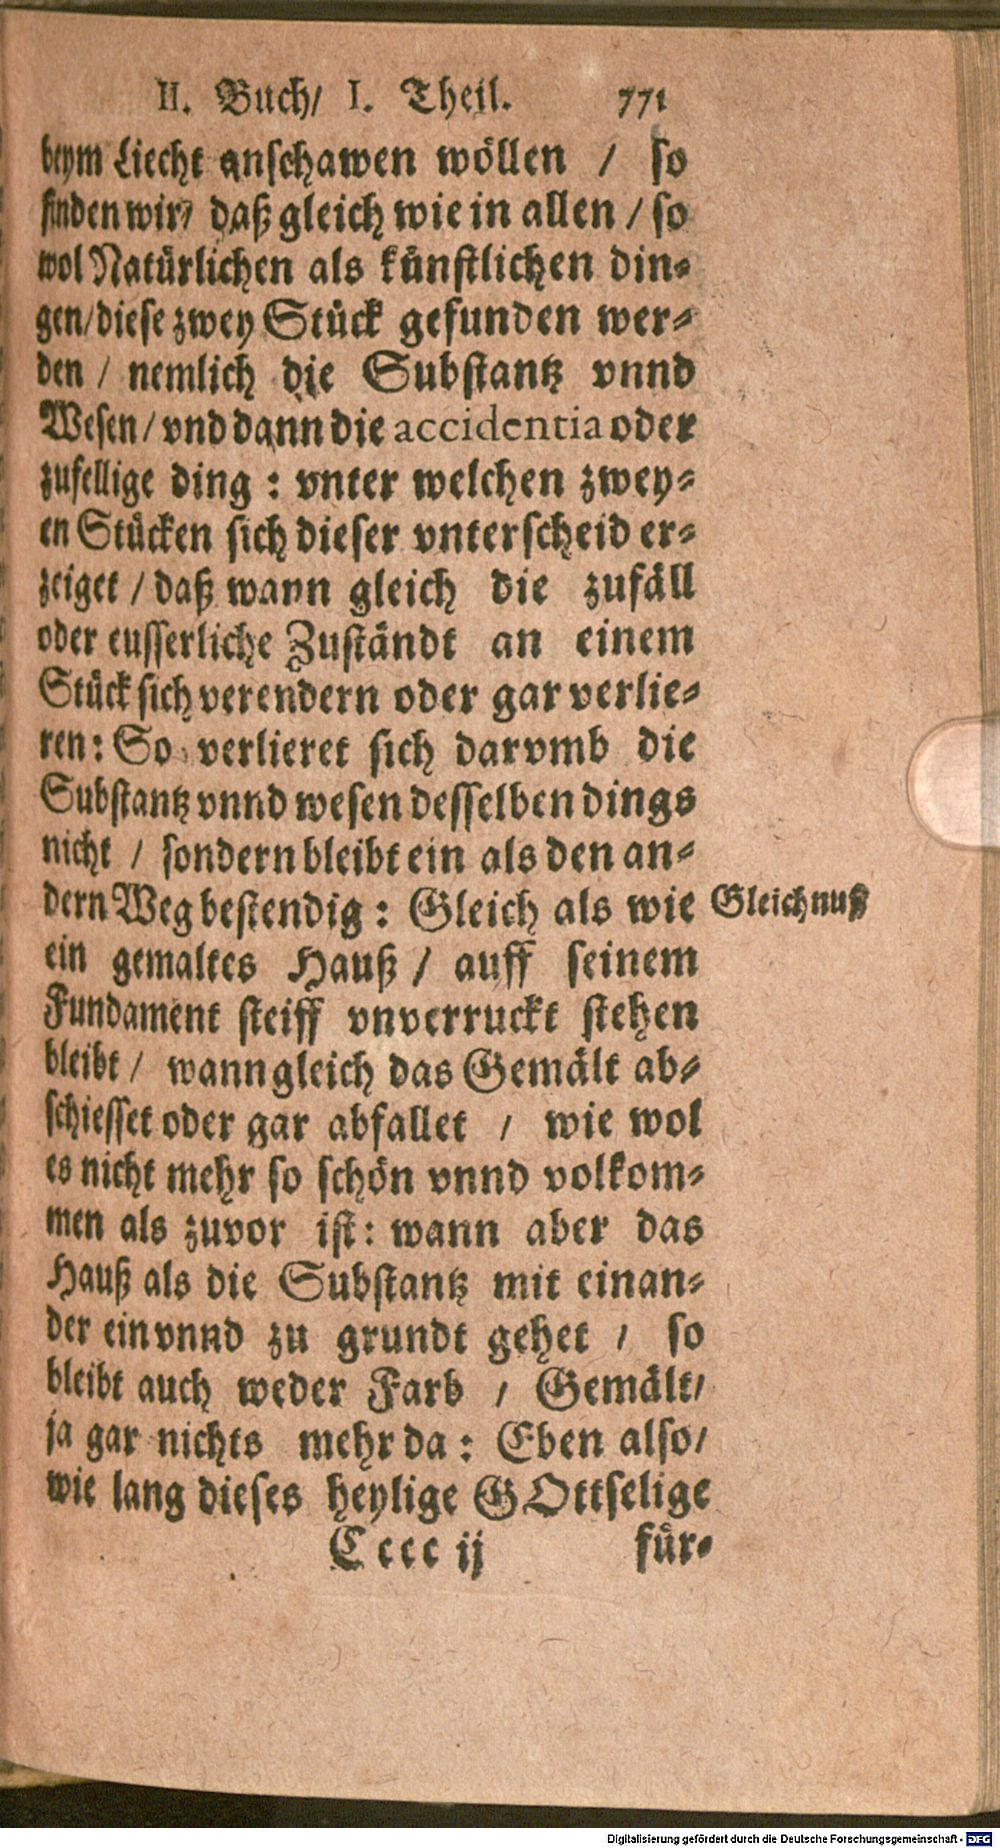 II. Buch/ I. Theil. 771
beym Liecht anschawen wöllen / so
finden wir/ daß gleich wie in allen / so
wol Natürlichen als künstlichen din-
gen/diese zwey Stück gefunden wer-
den / nemlich die Substantz vnnd
Wesen/ vnd dann die accidentia oder
zufellige ding : vnter welchen zwey-
en Stücken sich dieser vnterscheid er-
zeiget / daß wann gleich die zufäll
oder eusserliche Zuständt an einem
Stück sich verendern oder gar verlie-
ren: So verlieret sich darvmb die
Substantz vnnd wesen desselben dings
nicht / sondern bleibt ein als den an-
dern Weg bestendig : Gleich als wie Gleichnuß
ein gemaltes Hauß / auff seinem
Fundament steiff vnverruckt stehen
bleibt / wann gleich das Gemält ab-
schiesset oder gar abfallet / wie wol
es nicht mehr so schön vnnd volkom-
men als zuvor ist : wann aber das
Hauß als die Substantz mit einan-
der ein vnnd zu grundt gehet / so
bleibt auch weder Farb / Gemält/
ja gar nichts mehr da : Eben also/
wie lang dieses heylige GOttselige
Cccc ij für-
Digitalisierung gefördert durch die Deutsche Forschungsgemeinschaft - DFG